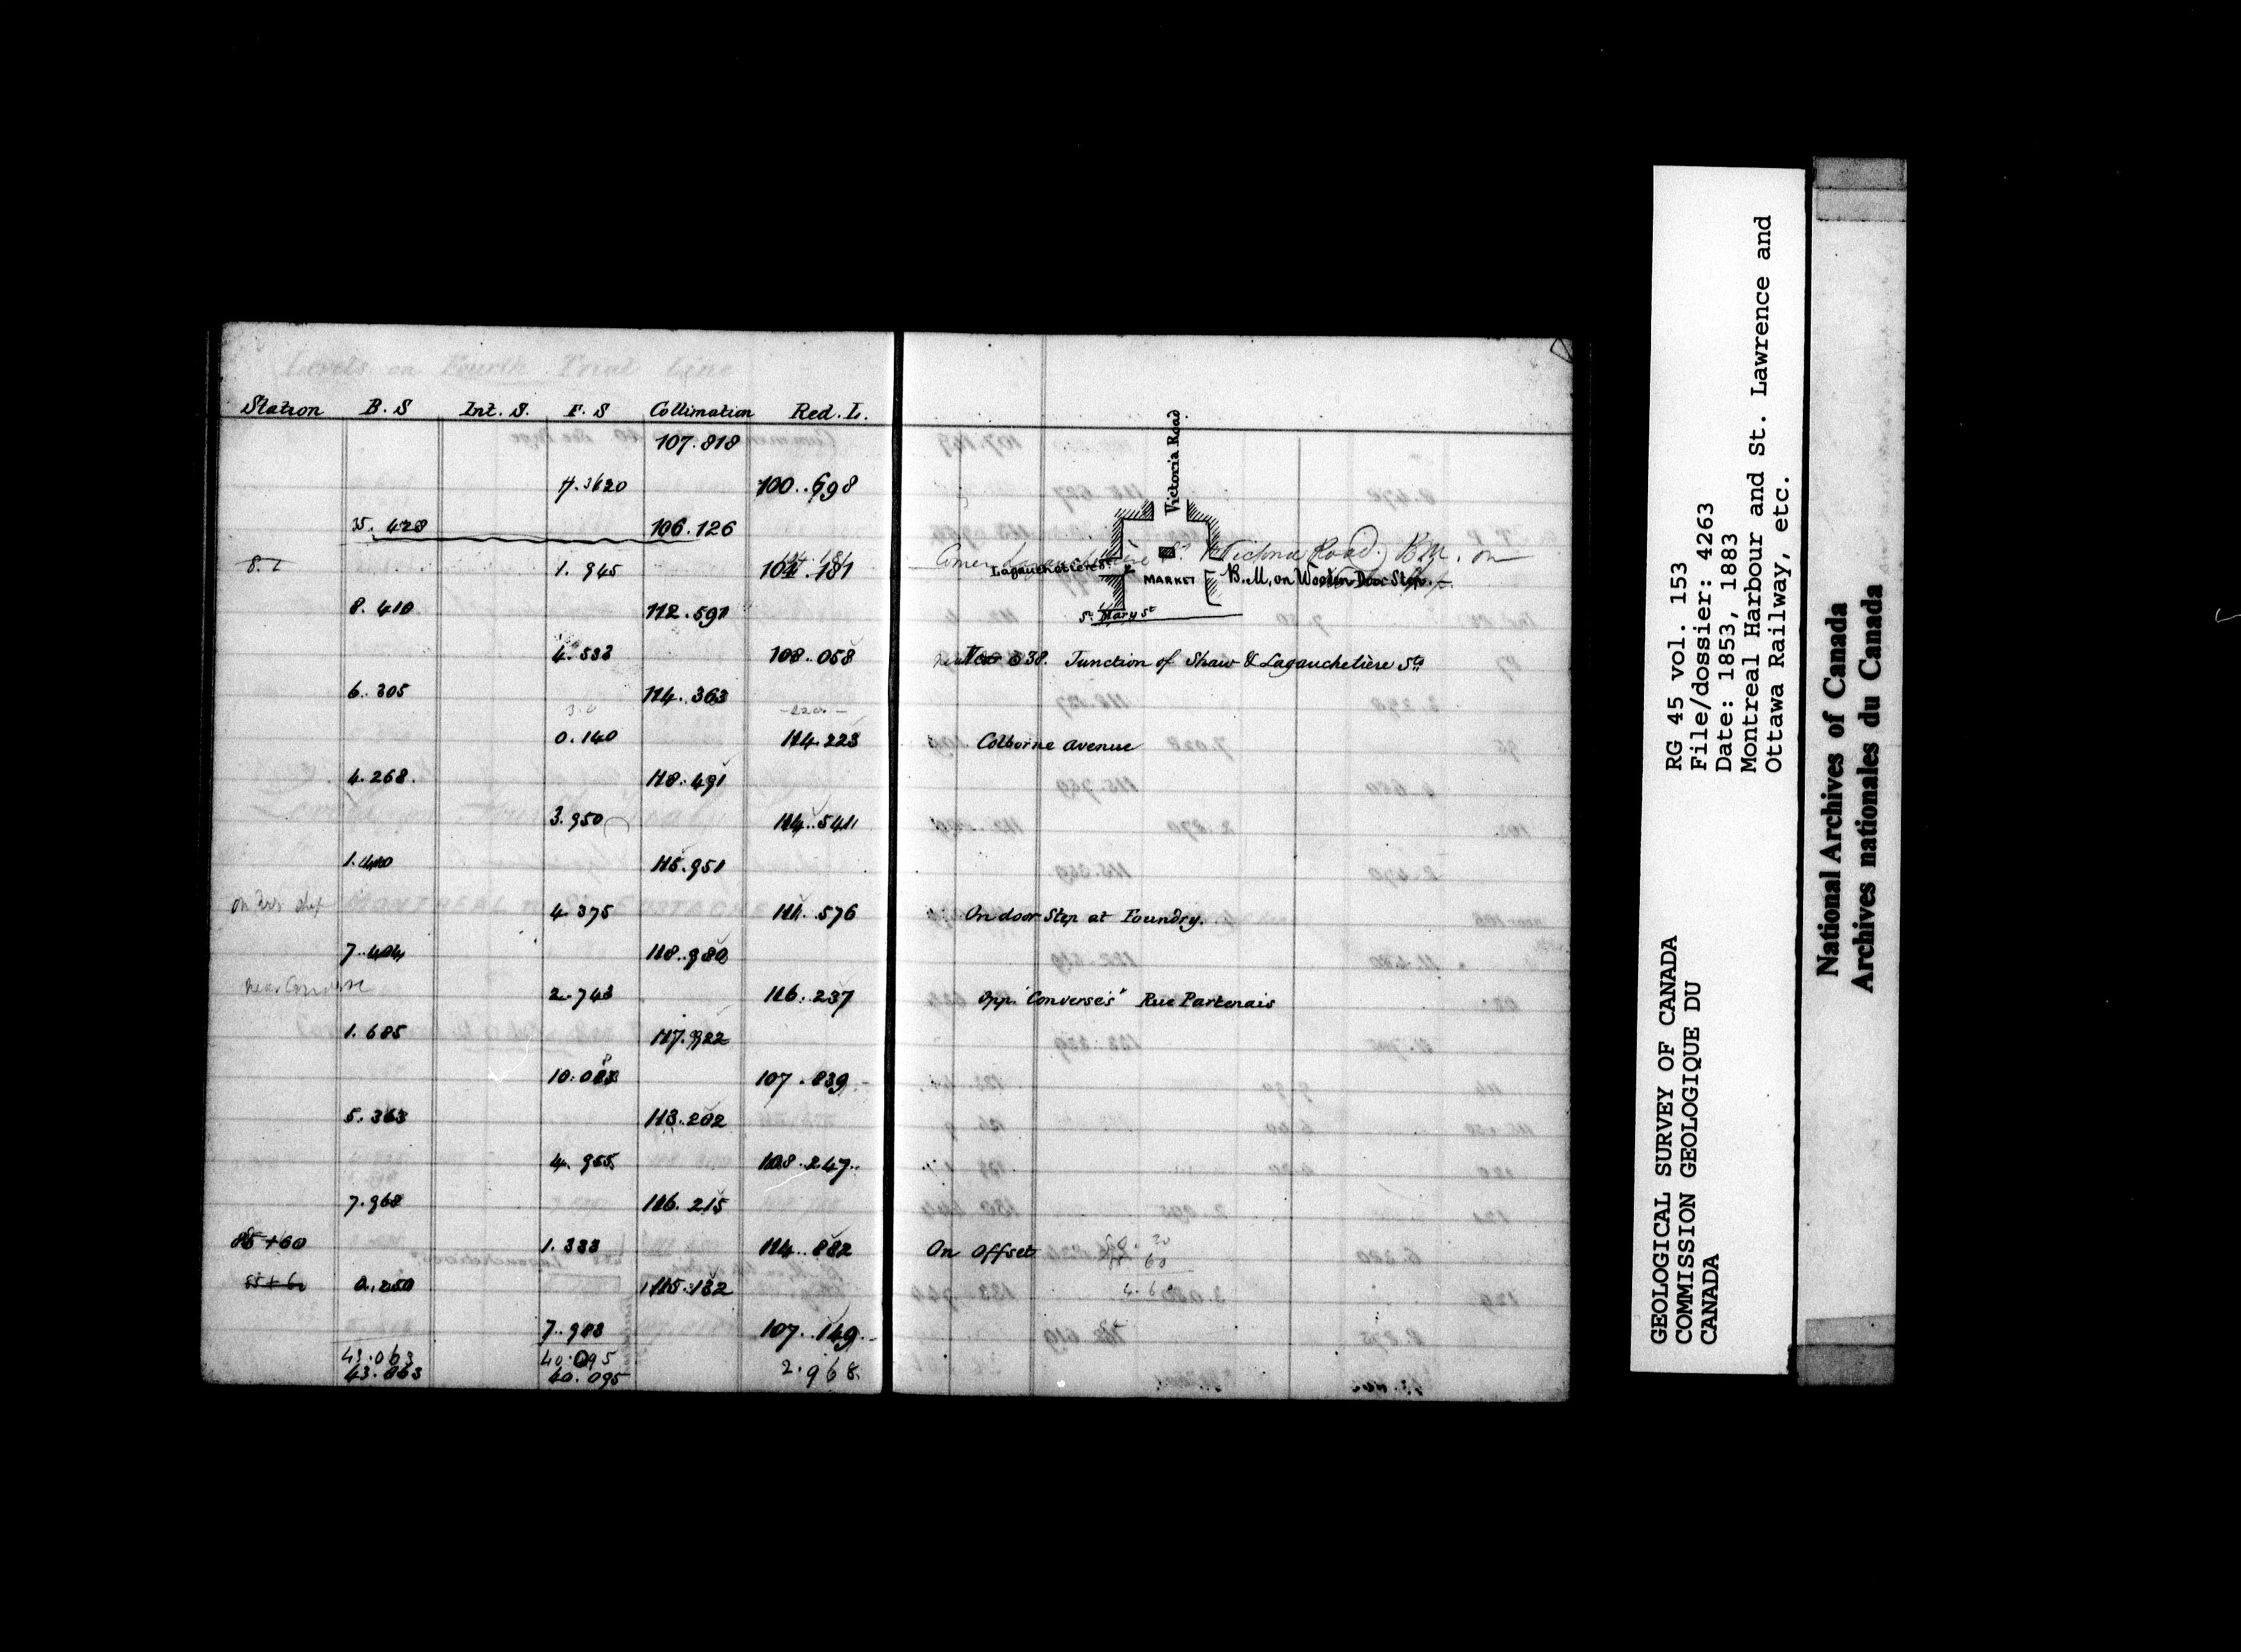 Levels on Fourth Trial Line
Station B. S Int. S. F. S Collimation Red. L.
107.818
7.3620 100.698
35.428 106.126
1.945 104.181
8.410 112.591
4.533 108.058
6.305 114.363
0.140 114.223
4.268. 118.491
3.950 114.541
1.410 115.951
on door step 4.375 111.576
7.404 118.980
near Converse 2.743 116.237
1.685 117.922
10.083 107.839
5.363 113.202
4.955 108.247
7.968 116.215
85+60 1.333 114.882
85+60 0.250 115.132
7.983 107.149
43.063 40.095 2.968
43.063 40.095
Victoria Road
Victoria Road. B.M. on
Lagauchetiere St
MARKET
B.M, on Western Door Step.
St Mary St
638. Junction of Shaw & Lagauchetière Sts
Colborne Avenue
On door Step at Foundry.
Opp. "Converse's" Rue Partenais
On Offset
GEOLOGICAL SURVEY OF CANADA
COMMISSION GEOLOGIQUE DU
CANADA
RG 45 vol. 153
File/dossier: 4263
Date: 1853, 1883
Montreal Harbour and St. Lawrence and
Ottawa Railway, etc.
National Archives of Canada
Archives nationales du Canada